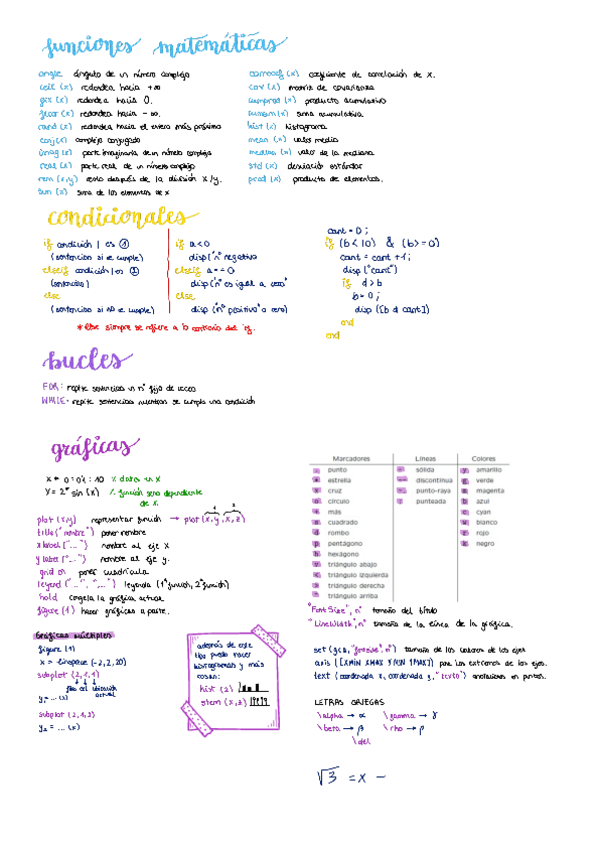 funciones matemáticas
angle ángulo de un número complejo
ceil (x) redondea hacia +∞
fix (x) redondea hacia 0.
floor (x) redondea hacia -∞.
round (x) redondea hacia el entero más próximo
conj(x) complejo conjugado
imag (x) parte imaginaria de un número complejo
real (x) parte real de un número complejo
rem (x,y) resto después de la división x/y.
sum (x) suma de los elementos de x
corrcoef (x) coeficiente de correlación de x.
cov (x) matriz de covarianza
cumprod (x) producto acumulativo
cumsum (x) suma acumulativa.
hist (x) histograma
mean (x) valor medio
median (x) valor de la mediana
std (x) desviación estándar
prod (x) producto de elementos.
condicionales
if condición 1 es ①
(sentencias si se cumple)
elseif condición 1 es ②
(sentencias)
else
(sentencias si no se cumple)
if a<0
disp('nº negativo
elseif a==0
disp('nº es igual a cero'
else
disp('nº positivo' a cero)
* Else siempre se refiere a lo contrario del if.
cant = 0;
if (b<10) & (b>=0)
cant = cant +1;
disp ("cant")
if d>b
b=0;
disp ([b d cant])
end
end
bucles
FOR: repite sentencias un nº fijo de veces
WHILE: repite sentencias mientras se cumpla una condición
gráficas
% datos en x
sin (x) % función seno dependiente
de x.
plot (x,y) representar función → plot (x,y,x,z)
title ("nombre") poner nombre
xlabel ("...") nombre al eje x
ylabel ("...") nombre al eje y.
grid on poner cuadrícula.
legend ("...", "...") leyenda (1ª función, 2ª función)
hold congela la gráfica actual
figure (1) hacer gráficas a parte.
Gráficas múltiples
figure (1)
x = linspace (-2,2,20)
subplot (2,1,1)
actual
y₁ = ... (x)
subplot (2,1,2)
y₂ = ... (x)
además de este
tipo puedo hacer
histogramas y más
cosas:
hist (z)
stem (x,z)
Marcadores Líneas Colores
punto sólida amarillo
estrella discontinua verde
cruz punto-raya magenta
círculo punteada azul
más cyan
cuadrado blanco
rombo rojo
pentágono negro
hexágono
triángulo abajo
triángulo izquierda
triángulo derecha
triángulo arriba
"FontSize", n" tamaño del título
"LineWidth", n" tamaño de la línea de la gráfica.
set (gca, "fontsize", n") tamaño de los valores de los ejes
axis ([XMIN XMAX YMIN YMAX]) pone los extremos de los ejes.
text (coordenada x, coordenada y, "texto") anotaciones en puntos.
LETRAS GRIEGAS
\alpha → α \gamma → γ
\beta → β \rho → ρ
\del
√3 = x −